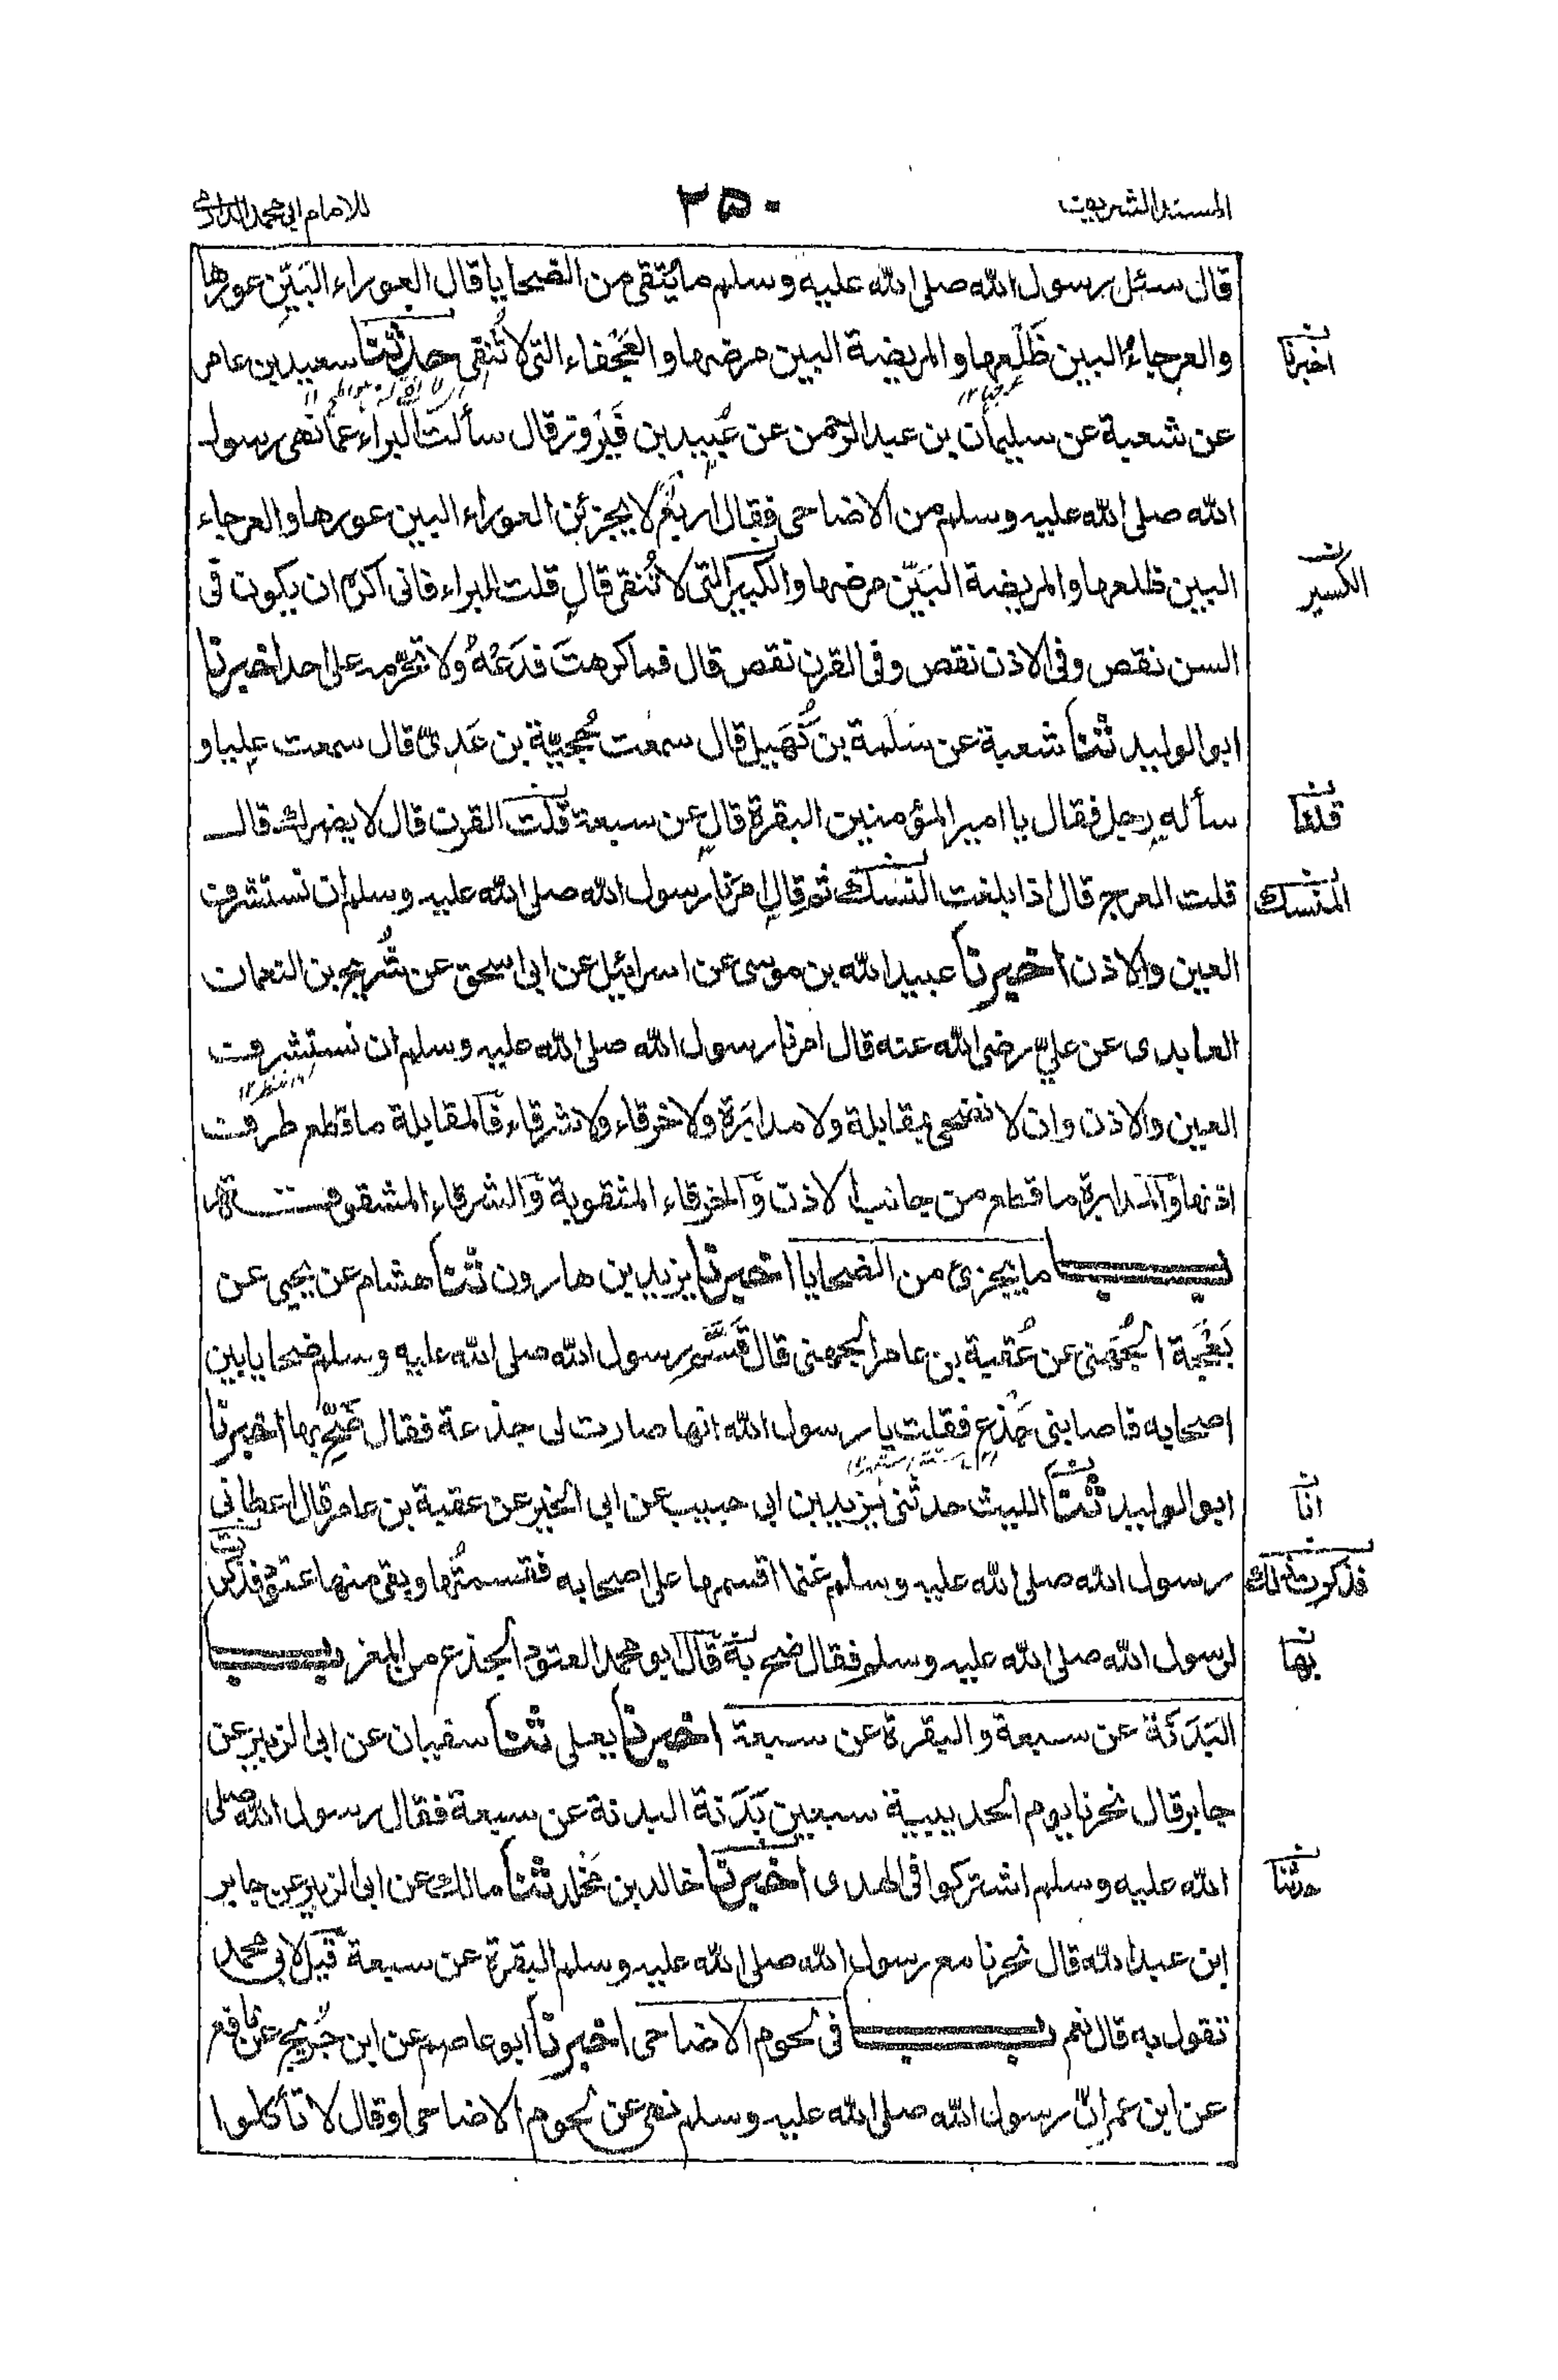 المسند الشريف ٢٥٠ للامام ابي محمد الدارمي
قال سئل رسول الله صلى الله عليه وسلم ما يُتقى من الضحايا قال العوراء البَيِّن عورها
والعرجاءُ البين ظَلَعها والمريضة البين مرضها والعَجْفاء التي لا تُنقي حدثنا سعيد بن عامر
اخبرنا
عرجها ١٢
عن شعبة عن سليمان بن عبد الرحمن عن عُبيد بن فَيْروز قال سألت البراء عما نهى رسول
الله صلى الله عليه وسلم من الاضاحى فقال اربعٌ لا يجزئن العوراء البين عورها والعرجاء
البين ظلعها والمريضة البَيِّن مرضها والكبير التى لا تُنقى قال قلت للبراء فانى اكره ان يكون فى
الكسير
السن نقص وفى الاذن نقص وفى القرن نقص قال فما كرهتَ فدَعْهُ ولا تحرّمه على احد اخبرنا
ابو الوليد ثنا شعبة عن سَلَمة بن كُهَيل قال سمعت حُجيّة بن عَدِىّ قال سمعت عليا و
سأله رجل فقال يا امير المؤمنين البقرة قال عن سبعة قلت القرن قال لا يضرك قال
قلنا
قلت العرج قال اذا بلغت النسك ثم قال امرَنا رسول الله صلى الله عليه وسلم ان نستشرف
المنسك
العين والاذن اخبرنا عبيد الله بن موسى عن اسرائيل عن ابى اسحق عن شُريح بن النعمان
العابدى عن عليّ رضى الله عنه قال امرنا رسول الله صلى الله عليه وسلم ان نستشرف
العين والاذن وان لا نضحى بمقابلة ولا مدابَرة ولا خرقاء ولا شرقاء فالمقابلة ما قطع طرف
اذنها والمدابرة ما قطع من جانب الاذن والخرقاء المثقوبة والشرقاء المشقوقة
باب ما يجزئ من الضحايا اخبرنا يزيد بن هارون ثنا هشام عن يحيى عن
بَعْجَة الجُهَنى عن عُقبة بن عامر الجهنى قال قَسَّم رسول الله صلى الله عليه وسلم ضحايا بين
اصحابه فاصابنى جَذع فقلت يا رسول الله انها صارت لى جذعة فقال ضَحِّ بها اخبرنا
ابو الوليد ثنا الليث حدثنى يزيد بن ابى حبيب عن ابى الخير عن عقبة بن عامر قال اعطانى
انا
رسول الله صلى الله عليه وسلم غنما اقسمها على اصحابه فقسمتُها وبقى منها عتود فذكرته
فذكرت ذلك
لرسول الله صلى الله عليه وسلم فقال ضح به قال ابو محمد العتود الجذع من المعز باب
بها
البَدَنَة عن سبعة والبقرة عن سبعة اخبرنا يعلى ثنا سفيان عن ابى الزبير عن
جابر قال نحرنا يوم الحديبية سبعين بَدَنة البدنة عن سبعة فقال رسول الله صلى
الله عليه وسلم اشتركوا فى الهدى اخبرنا خالد بن مَخْلد ثنا مالك عن ابى الزبير عن جابر
حدثنا
ابن عبد الله قال نحرنا مع رسول الله صلى الله عليه وسلم البقرة عن سبعة قيل لابى محمد
تقول به قال نعم باب فى لحوم الاضاحى اخبرنا ابو عاصم عن ابن جُرَيج عن نافع
عن ابن عمر انّ رسول الله صلى الله عليه وسلم نهى عن لحوم الاضاحى او قال لا تأكلوا